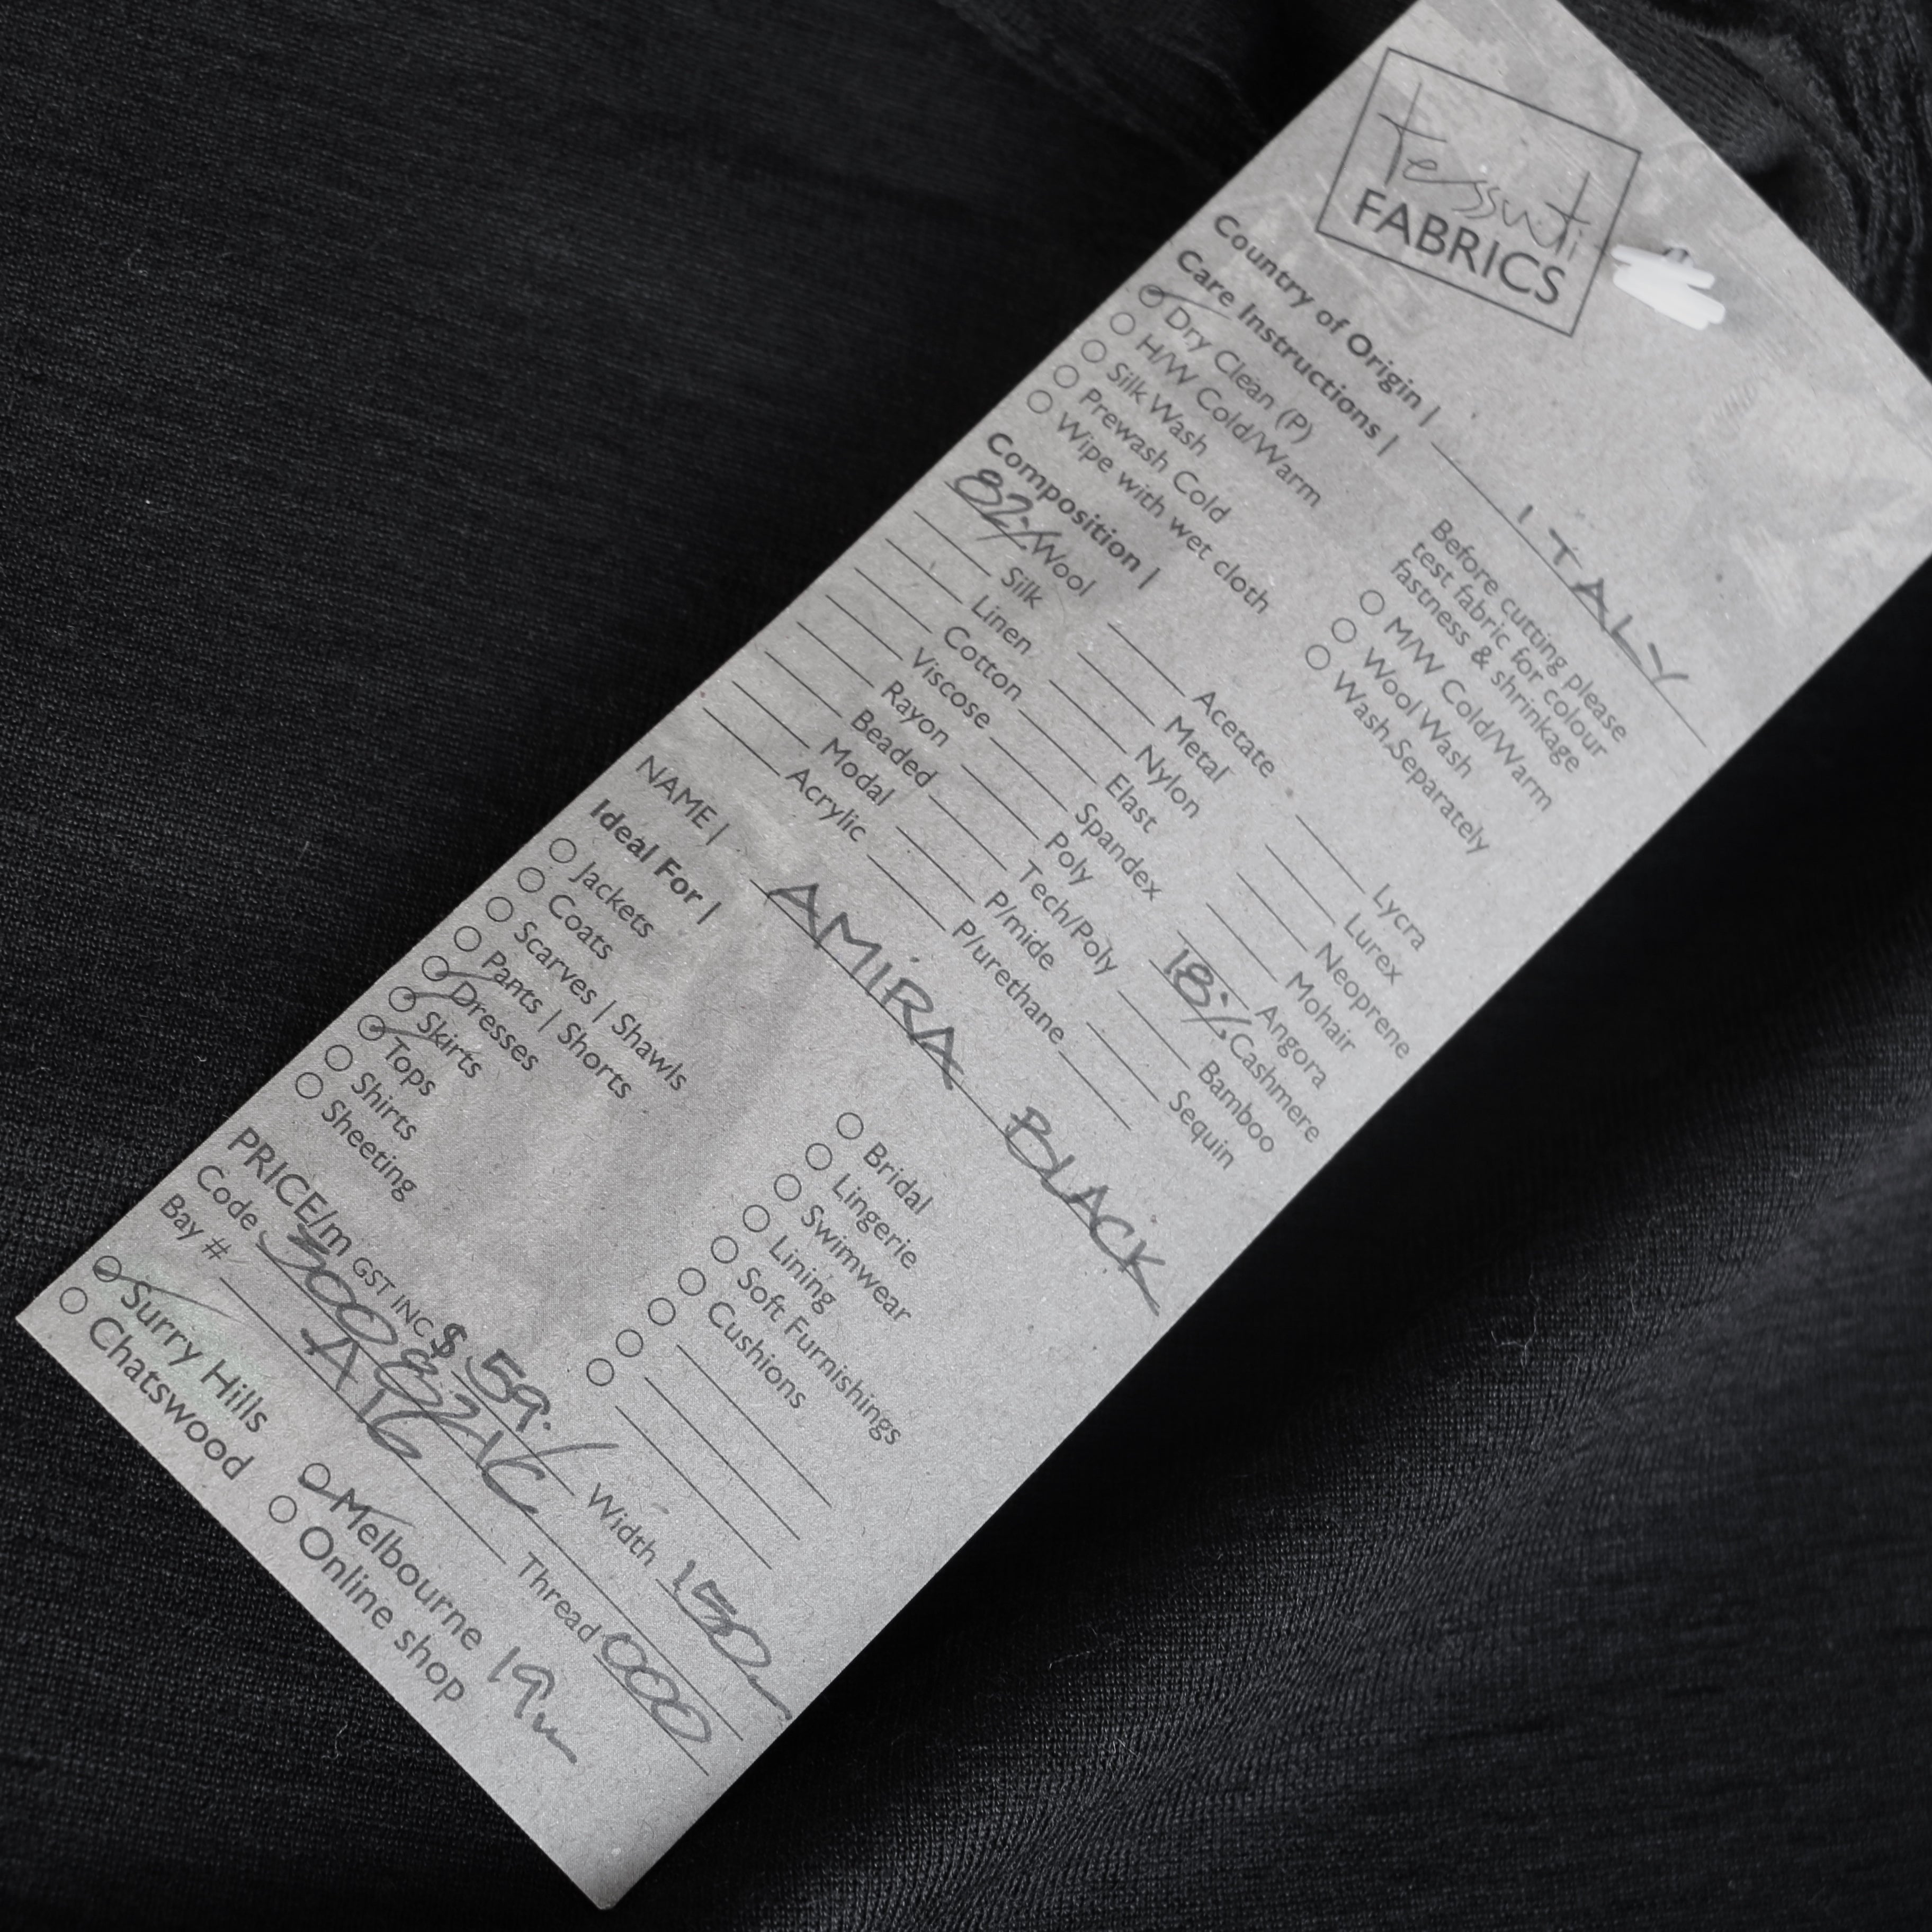 Tessuti
FABRICS
Country of Origin | ITALY
Care Instructions |
Dry Clean (P)
H/W Cold/Warm
Silk Wash
Prewash Cold
Wipe with wet cloth
Before cutting please
test fabric for colour
fastness & shrinkage
M/W Cold/Warm
Wool Wash
Wash Separately
Composition |
82% Wool
Silk
Linen
Cotton
Viscose
Rayon
Beaded
Modal
Acrylic
Acetate
Metal
Nylon
Elast
Spandex
Poly
Tech/Poly
P/mide
P/urethane
Lycra
Lurex
Neoprene
Mohair
Angora
18% Cashmere
Bamboo
Sequin
NAME | AMIRA BLACK
Ideal For |
Jackets
Coats
Scarves | Shawls
Pants | Shorts
Dresses
Skirts
Tops
Shirts
Sheeting
Bridal
Lingerie
Swimwear
Lining
Soft Furnishings
Cushions
PRICE/m GST INC $ 59. Width 150
Code
Bay # A16 Thread 000
Surry Hills
Chatswood
Melbourne 19m
Online shop